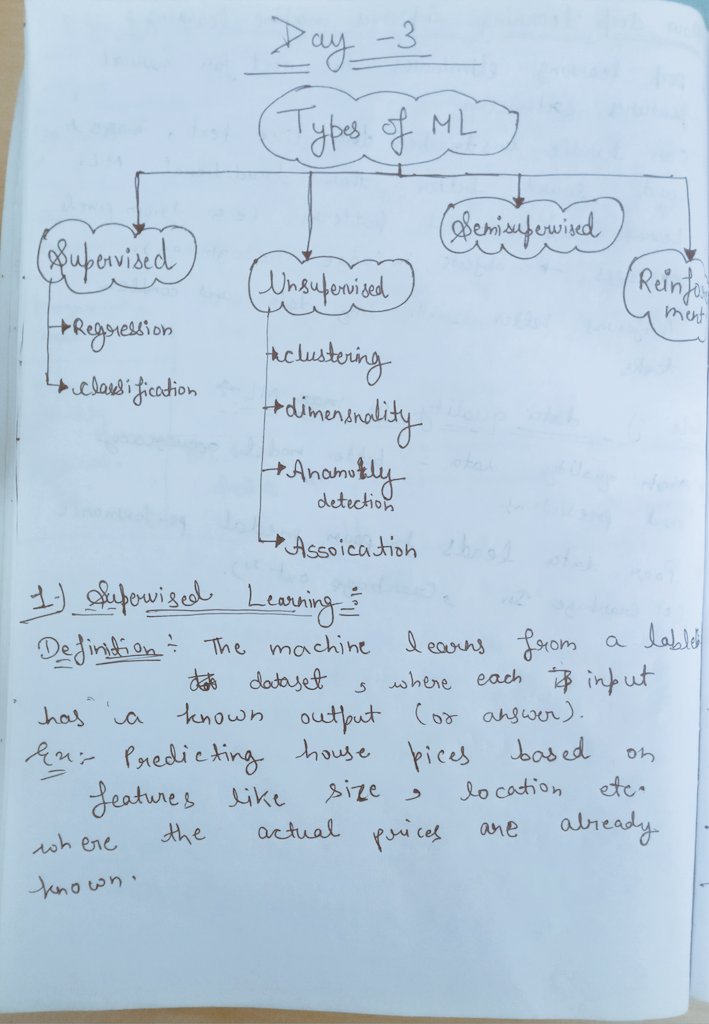 Day - 3
Types of ML
Supervised
Unsupervised
Semisupervised
Reinfor
ment
Regression
classification
clustering
dimensnality
Anamotly
detection
Assoication
1.) Supervised Learning :
Definition : The machine learns from a lable
dataset, where each input
has a known output (or answer).
Ex :- Predicting house pices based on
features like size, location etc.
where the actual prices are already
known.